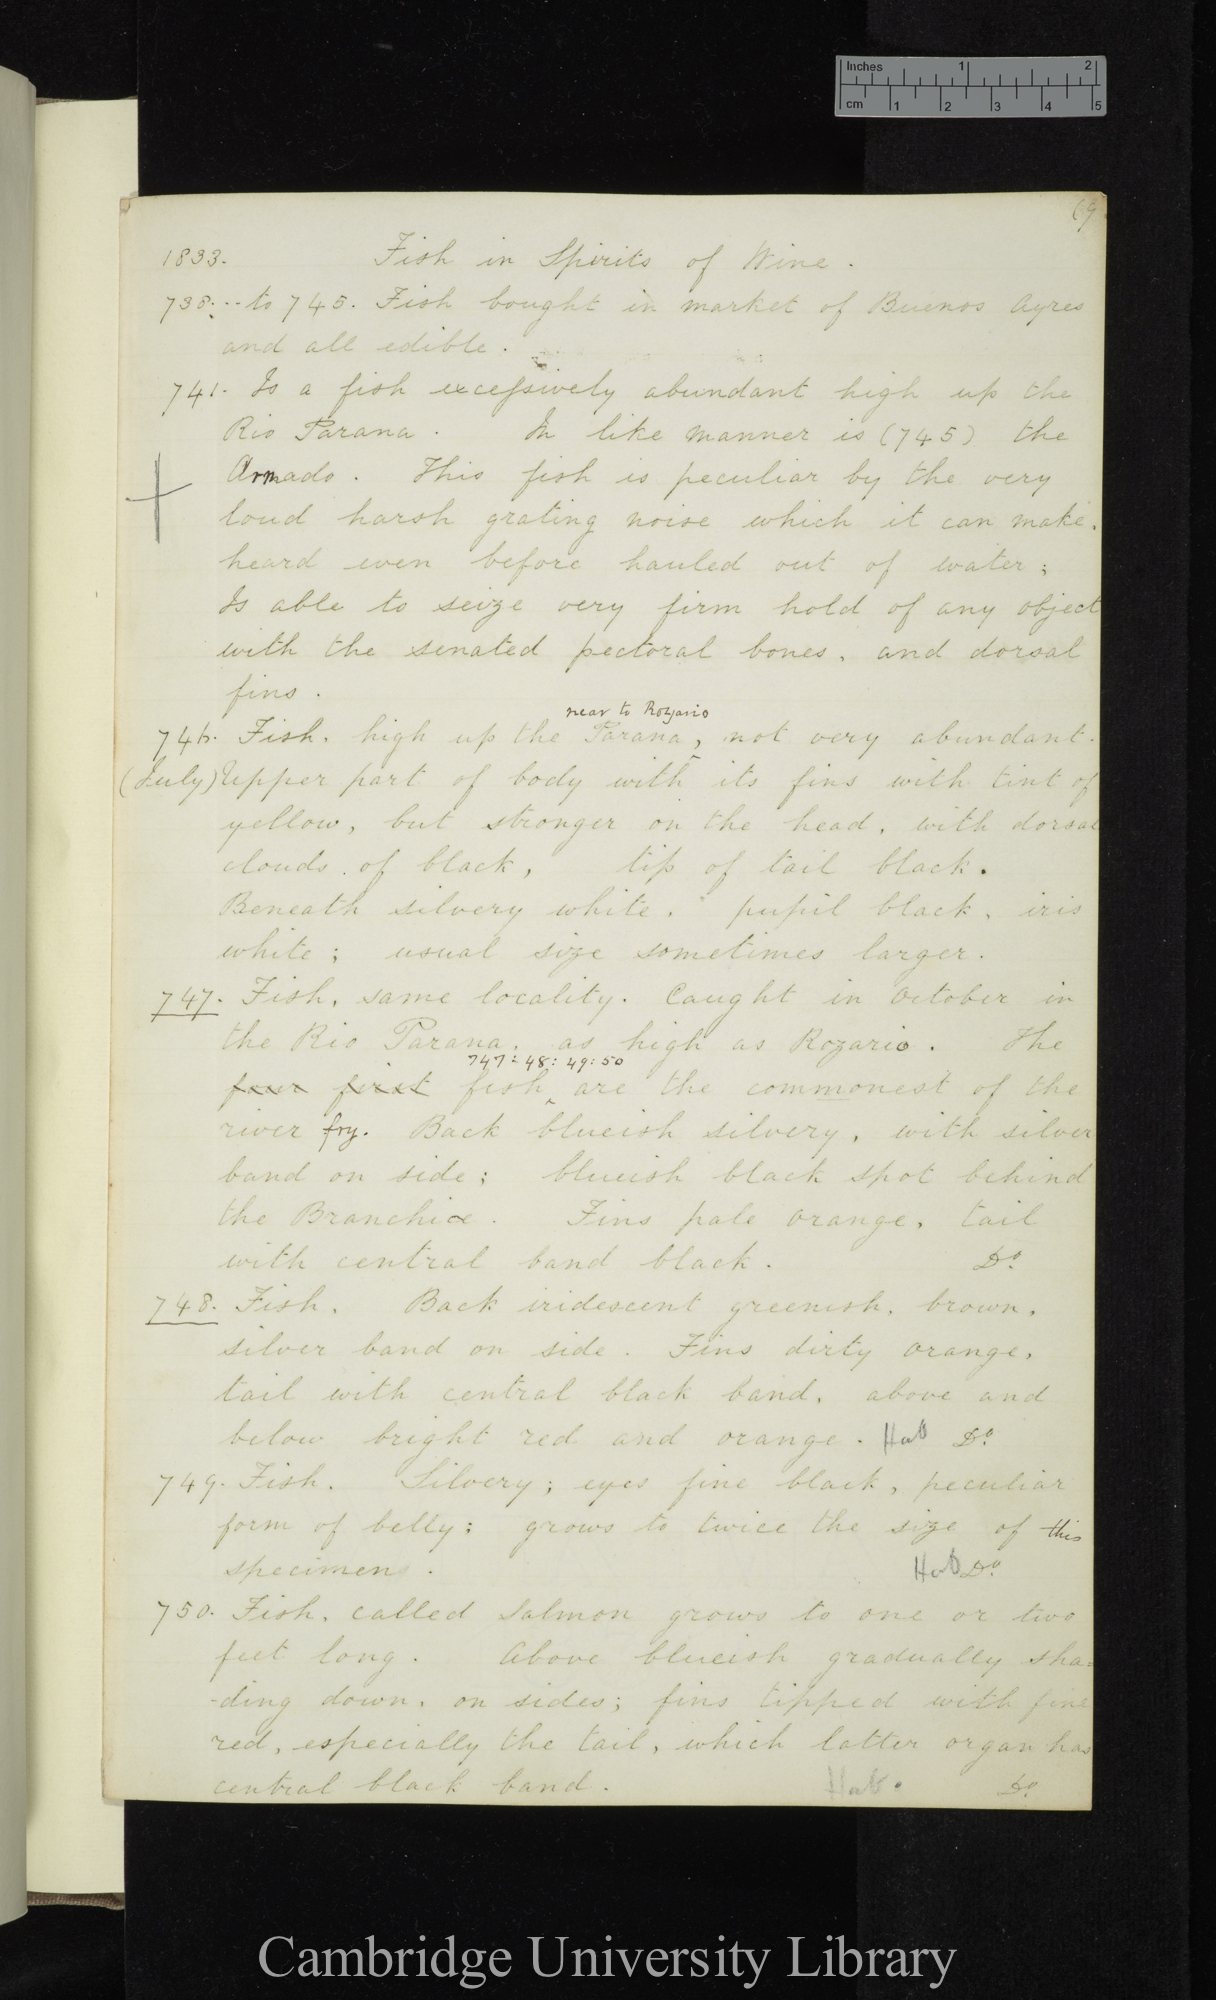 Inches 1 2
cm 1 2 3 4 5
69
1833. Fish in Spirits of Wine.
738: -- to 745. Fish bought in market of Buenos Ayres
and all edible.
741. Is a fish excessively abundant high up the
Rio Parana. In like manner is (745) the
Armado. This fish is peculiar by the very
loud harsh grating noise which it can make,
heard even before hauled out of water;
Is able to seize very firm hold of any object
with the serrated pectoral bones, and dorsal
fins.
near to Rozario
746. Fish. high up the Parana, not very abundant.
(July) Upper part of body with its fins with tint of
yellow, but stronger on the head, with dorsal
clouds of black, tip of tail black.
Beneath silvery white, pupil black, iris
white; usual size sometimes larger.
747. Fish, same locality. Caught in October in
the Rio Parana, as high as Rozario. The
747: 48: 49: 50
four first fish are the commonest of the
river fry. Back blueish silvery, with silver
band on side; blueish black spot behind
the Branchiæ. Fins pale orange, tail
with central band black. Do.
748. Fish. Back iridescent greenish, brown,
silver band on side. Fins dirty orange,
tail with central black band, above and
below bright red and orange. Hab Do.
749. Fish. Silvery; eyes fine black, peculiar
form of belly; grows to twice the size of this
specimen. Hab Do.
750. Fish, called Salmon grows to one or two
feet long. Above blueish gradually sha=
-ding down, on sides; fins tipped with fine
red, especially the tail, which latter organ has
central black band. Hab. Do.
Cambridge University Library